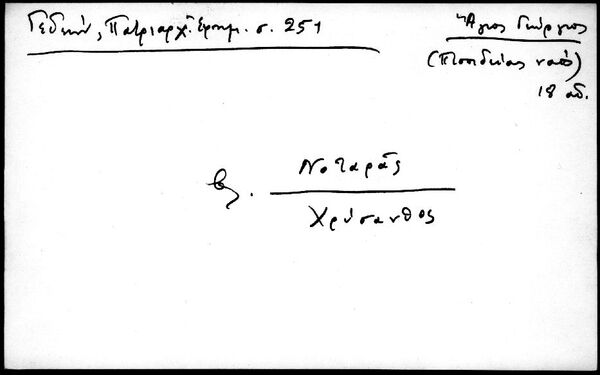 Γεδεών, Πατριαρχ. Εφημ. σ. 251
Ἅγιος Γεώργιος
(Πισιδείας ναός)
18 αἰ.
βλ. Νοταρᾶς
Χρύσανθος